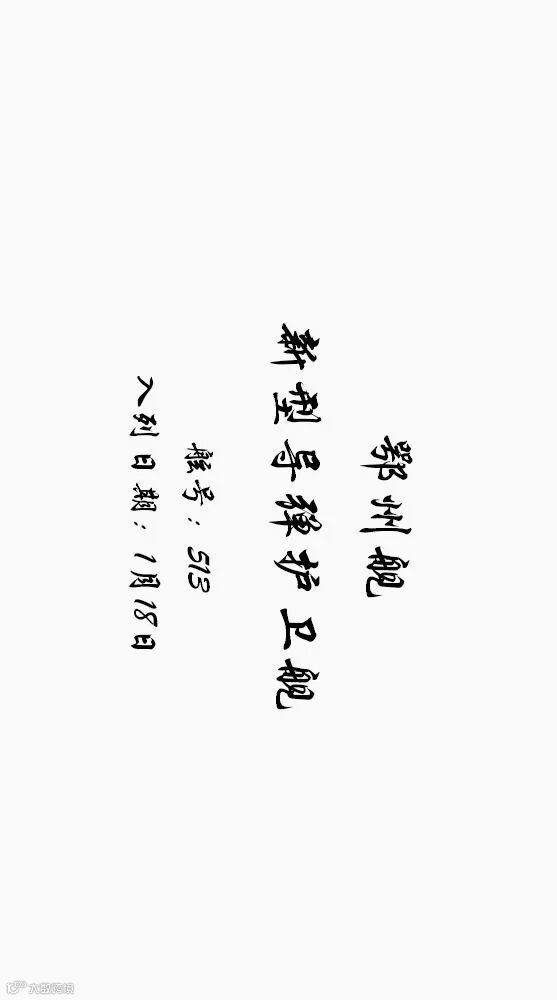 鄂州舰
新型导弹护卫舰
舷号：513
入列日期：1月18日
大数跨境